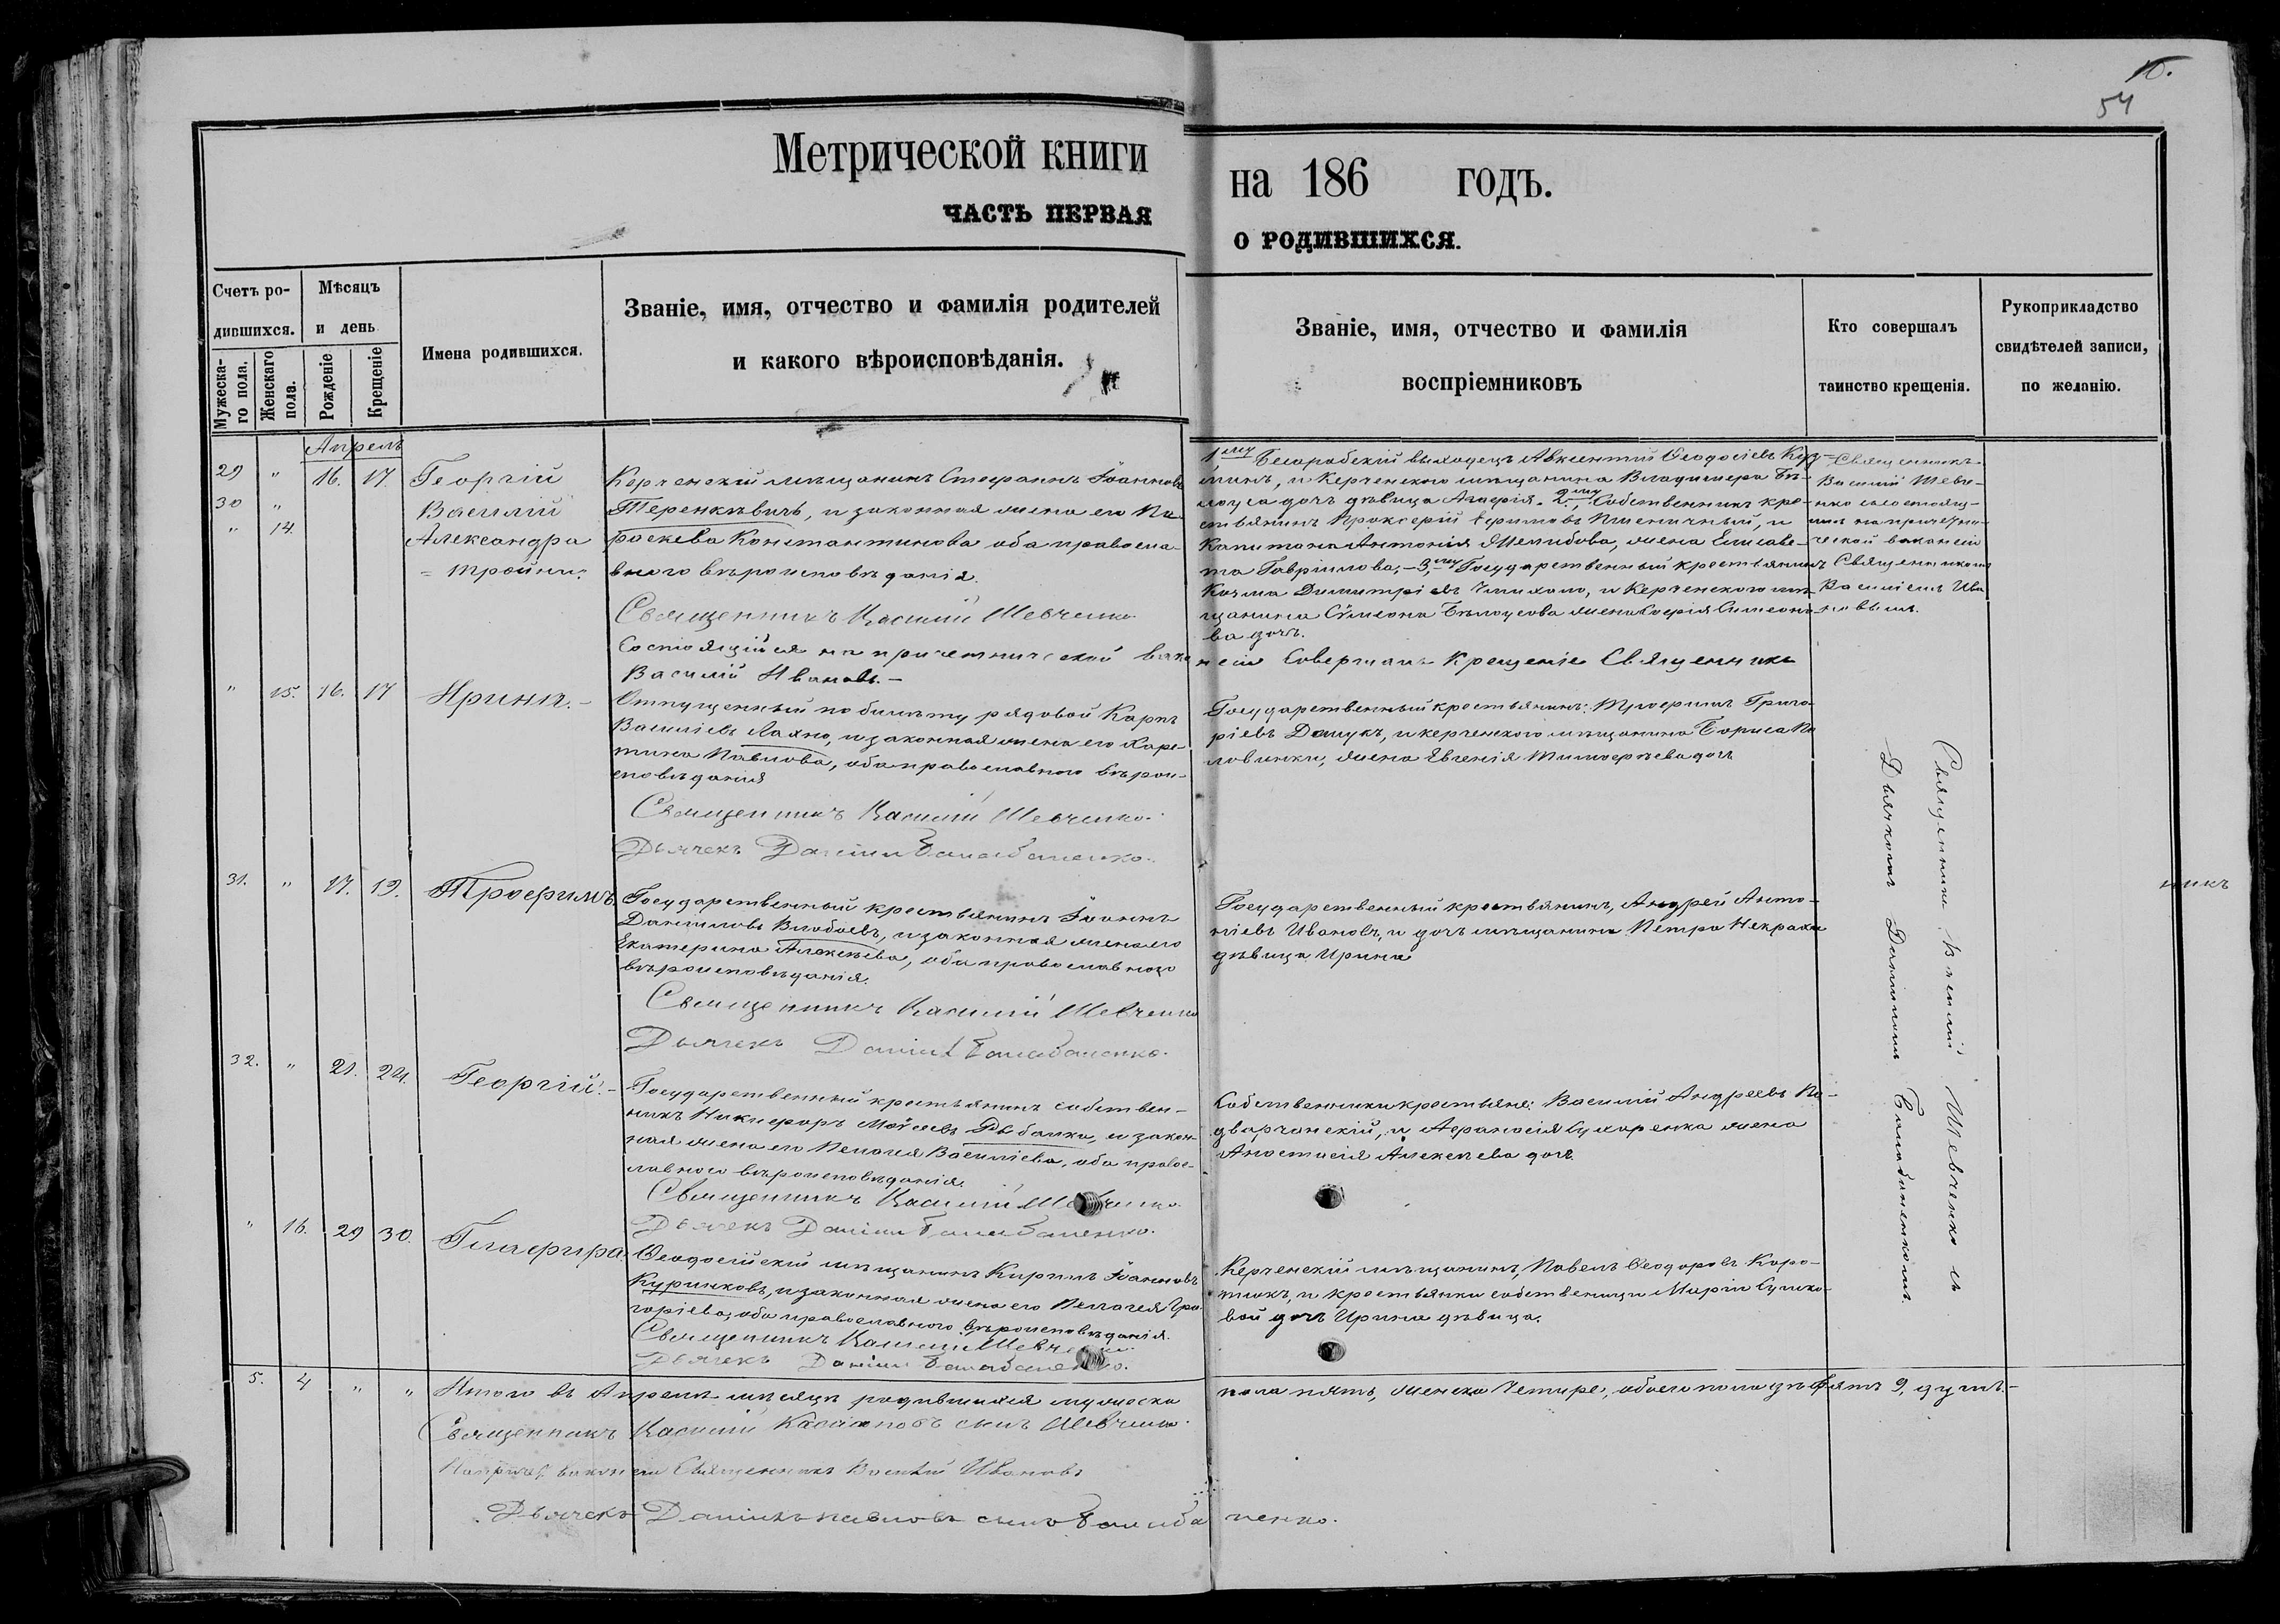 54
Метрической книги на 186 годъ.
ЧАСТЬ ПЕРВАЯ О РОДИВШИХСЯ.
Счетъ ро-
дившихся.
Мужеска-
го пола.
Женскаго
пола.
Мѣсяцъ
и день
Рожденіе
Крещеніе
Имена родившихся.
Званіе, имя, отчество и фамилія родителей
и какого вѣроисповѣданія.
Званіе, имя, отчество и фамилія
воспріемниковъ
Кто совершалъ
таинство крещенія.
Рукоприкладство
свидѣтелей записи,
по желанію.
Апрель
29 " 16. 17. Георгій
30 " Василій
" 14. Александра
= тройни.
Керченскій мѣщанинъ Стефанъ Іоанновъ
Теренкѣвичъ, и законная жена его Па-
раскева Константинова оба правосла-
внаго вѣроисповѣданія.
Священникъ Василій Шевченко
Состоящійся на причетнической вака нсіи Совершалъ Крещеніе Священникъ
Василій Ивановъ.-
1му Бесарабскій выходецъ Авксентій Ѳеодосіевъ
и Керченского мѣщанина Владимера Бѣ-
лоуса дочь дѣвица Агафія. 2му Собственникъ кре-
стьянинъ Прокофій Пшеничный, и
Капитана Антонія жена Елисаве-
та Гавріилова,- 3му Государственный крестьянинъ
Козма Димитріевъ и Керченского мѣ-
щанина Сѵмеона Бѣлоусова жена Софія Симеоно-
ва дочь.
Священникъ
Василій Шевче-
нко съ состоящ-
имъ на причетни-
ческой вакансіи
Священникомъ
Василіемъ Ива-
новымъ.
" 15. 16. 17 Ирина.-
Отпущенный по билету рядовой Карпъ
Василіевъ Лахно, и законная жена его Харе-
тина Павлова, оба православнаго вѣрои-
сповѣданія
Священникъ Василій Шевченко.
Дьячекъ Даніилъ Балабаненко.
Государственный крестьянинъ: Трофимъ Григо-
ріевъ Дацукъ, и керченского мѣщанина Бориса По
ловинки, жена Евгенія Тимофѣева дочь
31. " 17. 19. Трофимъ
Государственный крестьянинъ Іоаннъ
Даніиловъ и законная жена его
Екатерина Алексѣева, оба православнаго
вѣроисповѣданія.
Священникъ Василій Шевченко
Дьячекъ Даніилъ Балабаненко.
Государственный крестьянинъ, Андрей Анто-
ніевъ Ивановъ, и дочь мѣщанина Петра Некраха
дѣвица Ирина
Священникъ Василій Шевченко съ
Дьячкомъ Даніиломъ Балабаненкомъ.
никъ
32. " 21. 24. Георгій.-
Государственный крестьянинъ собствен-
никъ Никифоръ Моѵсеевъ Дѣбалка, и закон-
ная жена его Пелагія Василіева, оба правос-
лавного вѣроисповѣданія.
Священникъ Василій Шевченко
Дьячекъ Даніилъ Балабаненко.
Собственники крестьяне: Василій Андреевъ По-
дварчанскій, и Афанасія Сухаренка жена
Анастасія Алексѣева дочь.
" 16. 29 30. Глафира.
Ѳеодосійскій мѣщанинъ Кирилъ Іоанновъ
Куринковъ, и законная жена его Пелагея Гри-
горіева, оба православного вѣроисповѣданія.
Священникъ Василій Шевченко
Дьячекъ Даніилъ Балабаненко.
Керченскій мѣщанинъ, Павелъ Ѳеодоровъ Коро-
тюкъ, и крестьянки собственици Маріи Сушко-
вой дочь Ирина дѣвица.
5. 4 " " Итого въ Апрелѣ мѣсяцѣ родившихся мужеска пола пять, женска Четире, обоего пола девять 9, душъ.-
Священникъ Василій Касіановъ сынъ Шевченко.
На причет. вакансіи Священникъ Василій Ивановъ
Дьячекъ Даніилъ Павловъ сынъ Балаба ненко.